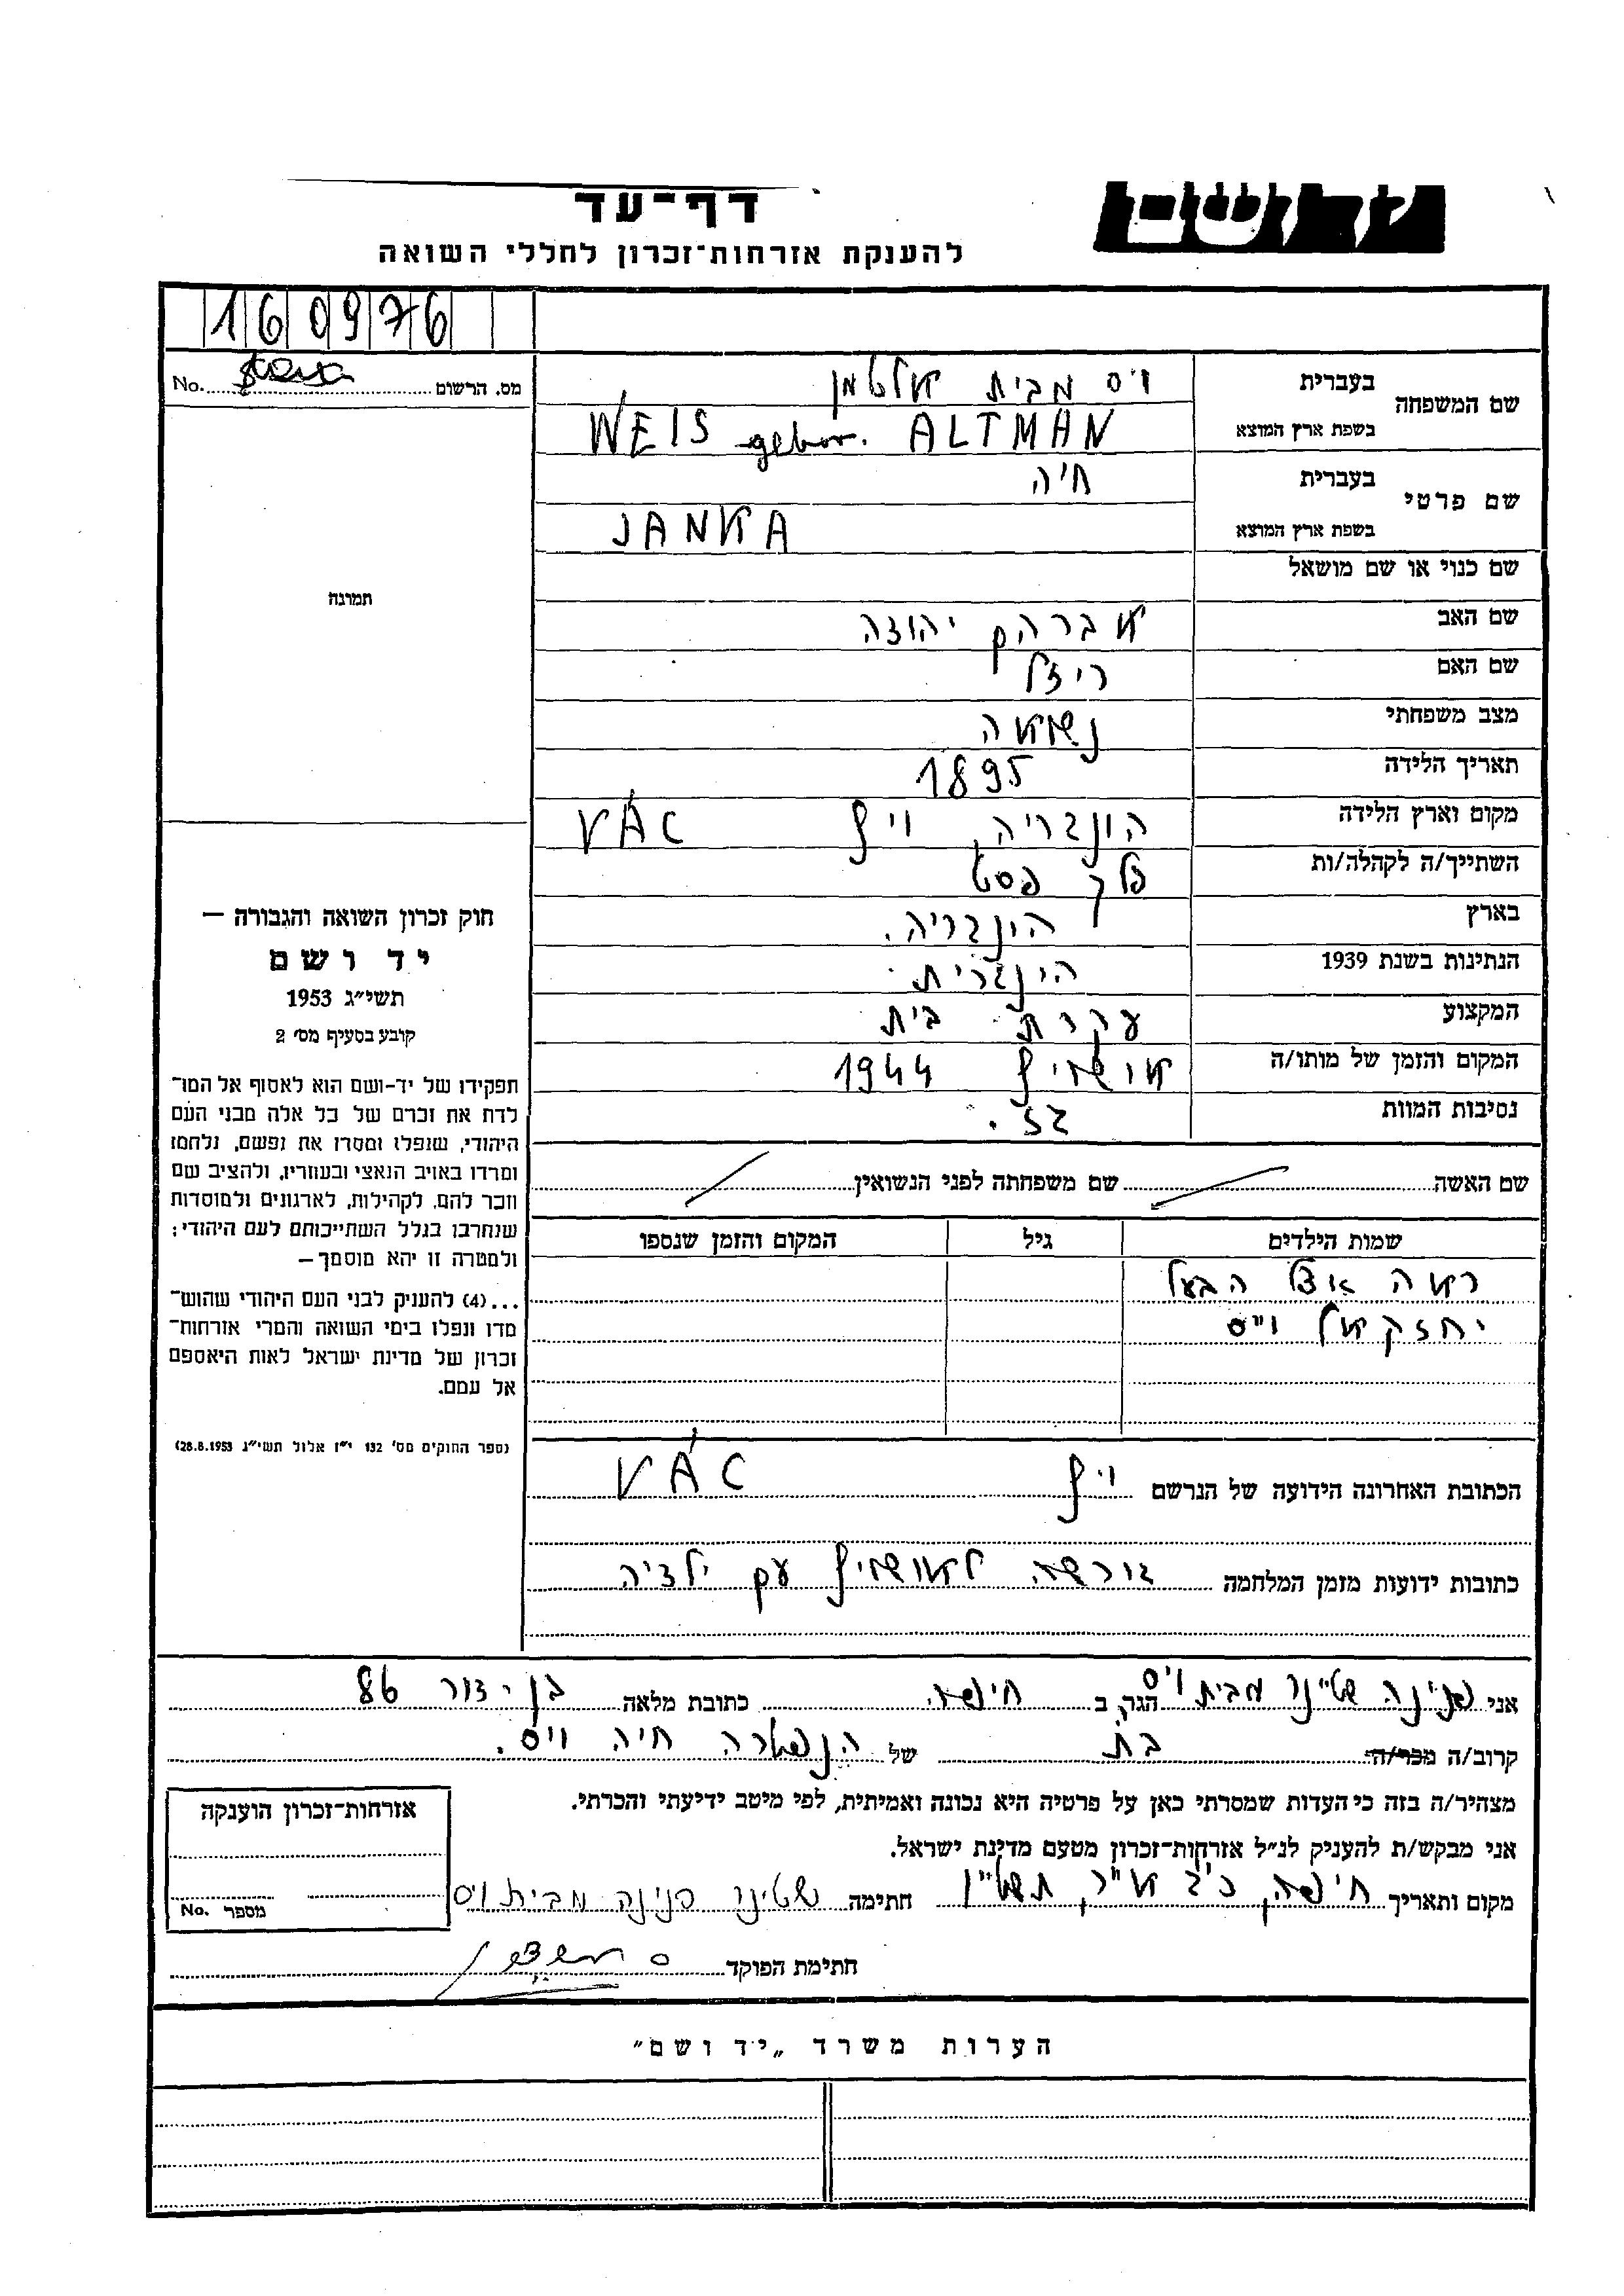 דף־עד
להענקת אזרחות־זכרון לחללי השואה
160976
מס. הרשום No.
תמונה
חוק זכרון השואה והגבורה —
יד ושם
תשי״ג 1953
קובע בסעיף מס׳ 2
תפקידו של יד-ושם הוא לאסוף אל המו־
לדת את זכרם של כל אלה מבני העם
היהודי, שנפלו ומסרו את נפשם, נלחמו
ומרדו באויב הנאצי ובעוזריו, ולהציב שם
וזכר להם, לקהילות, לארגונים ולמוסדות
שנחרבו בגלל השתייכותם לעם היהודי;
ולמטרה זו יהא מוסמך—
...(4) להענים לבני העם היהודי שהוש־
מדו ונפלו בימי השואה והמרי אזרחות־
זכרון של מדינת ישראל לאות היאספם
אל עמם.
(ספר החוקים מס׳ 132 י״ז אלול תשי״ג 28.8.1953)
שם המשפחה בעברית ויס מבית אלטמן
בשפת ארץ המוצא WEIS gebor. ALTMAN
שם פרטי בעברית חיה
בשפת ארץ המוצא JANKA
שם כנוי או שם מושאל
שם האב אברהם יהודה
שם האם ריזל
מצב משפחתי נשואה
תאריך הלידה 1895
מקום וארץ הלידה הונגריה, ויץ VÁC
השתייך/ה לקהלה/ות פלך פסט
בארץ הונגריה.
הנתינות בשנת 1939 הונגרית
המקצוע עקרת בית
המקום והזמן של מותו/ה אושויץ 1944
נסיבות המוות גז.
שם האשה שם משפחתה לפני הנשואין
שמות הילדים גיל המקום והזמן שנספו
ראה אצל הבעל
יחזקאל וייס
הכתובת האחרונה הידועה של הנרשם ויץ VÁC
כתובות ידועות מזמן המלחמה גורשה לאושויץ עם ילדיה
אני פנינה שטיינר מבית ויס הגר ב חיפה כתובת מלאה בן יהודה 86
קרוב/ה מכר/ה בת של הנפטרה חיה ויס.
מצהיר/ה בזה כי העדות שמסרתי כאן על פרטיה היא נכונה ואמיתית, לפי מיטב ידיעתי והכרתי.
אני מבקש/ת להעניק לנ״ל אזרחות־זכרון מטעם מדינת ישראל.
מקום ותאריך חיפה, חתימה שטינר פנינה מבית ויס
חתימת הפוקד
אזרחות־זכרון הוענקה
מספר No.
הערות משרד „יד ושם״